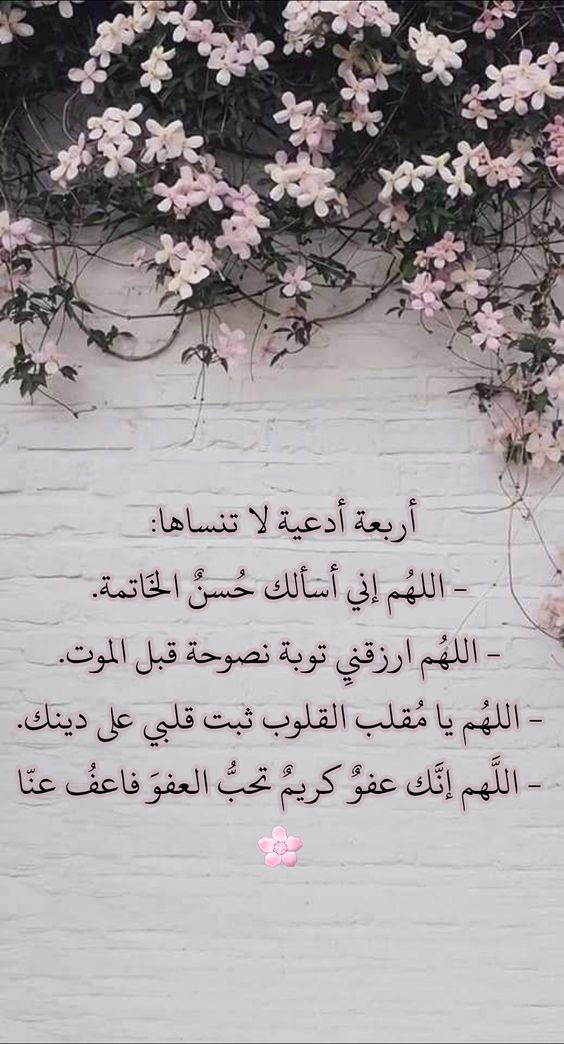 أربعة أدعية لا تنساها:
- اللهُم إني أسألك حُسنٌ الخَاتمة.
- اللهُم ارزقنيِ توبة نصوحة قبل الموت.
- اللهُم يا مُقلب القلوب ثبت قلبي على دينك.
- اللَّهم إنَّك عفوٌ كريمٌ تحبُّ العفوَ فاعفُ عنّا